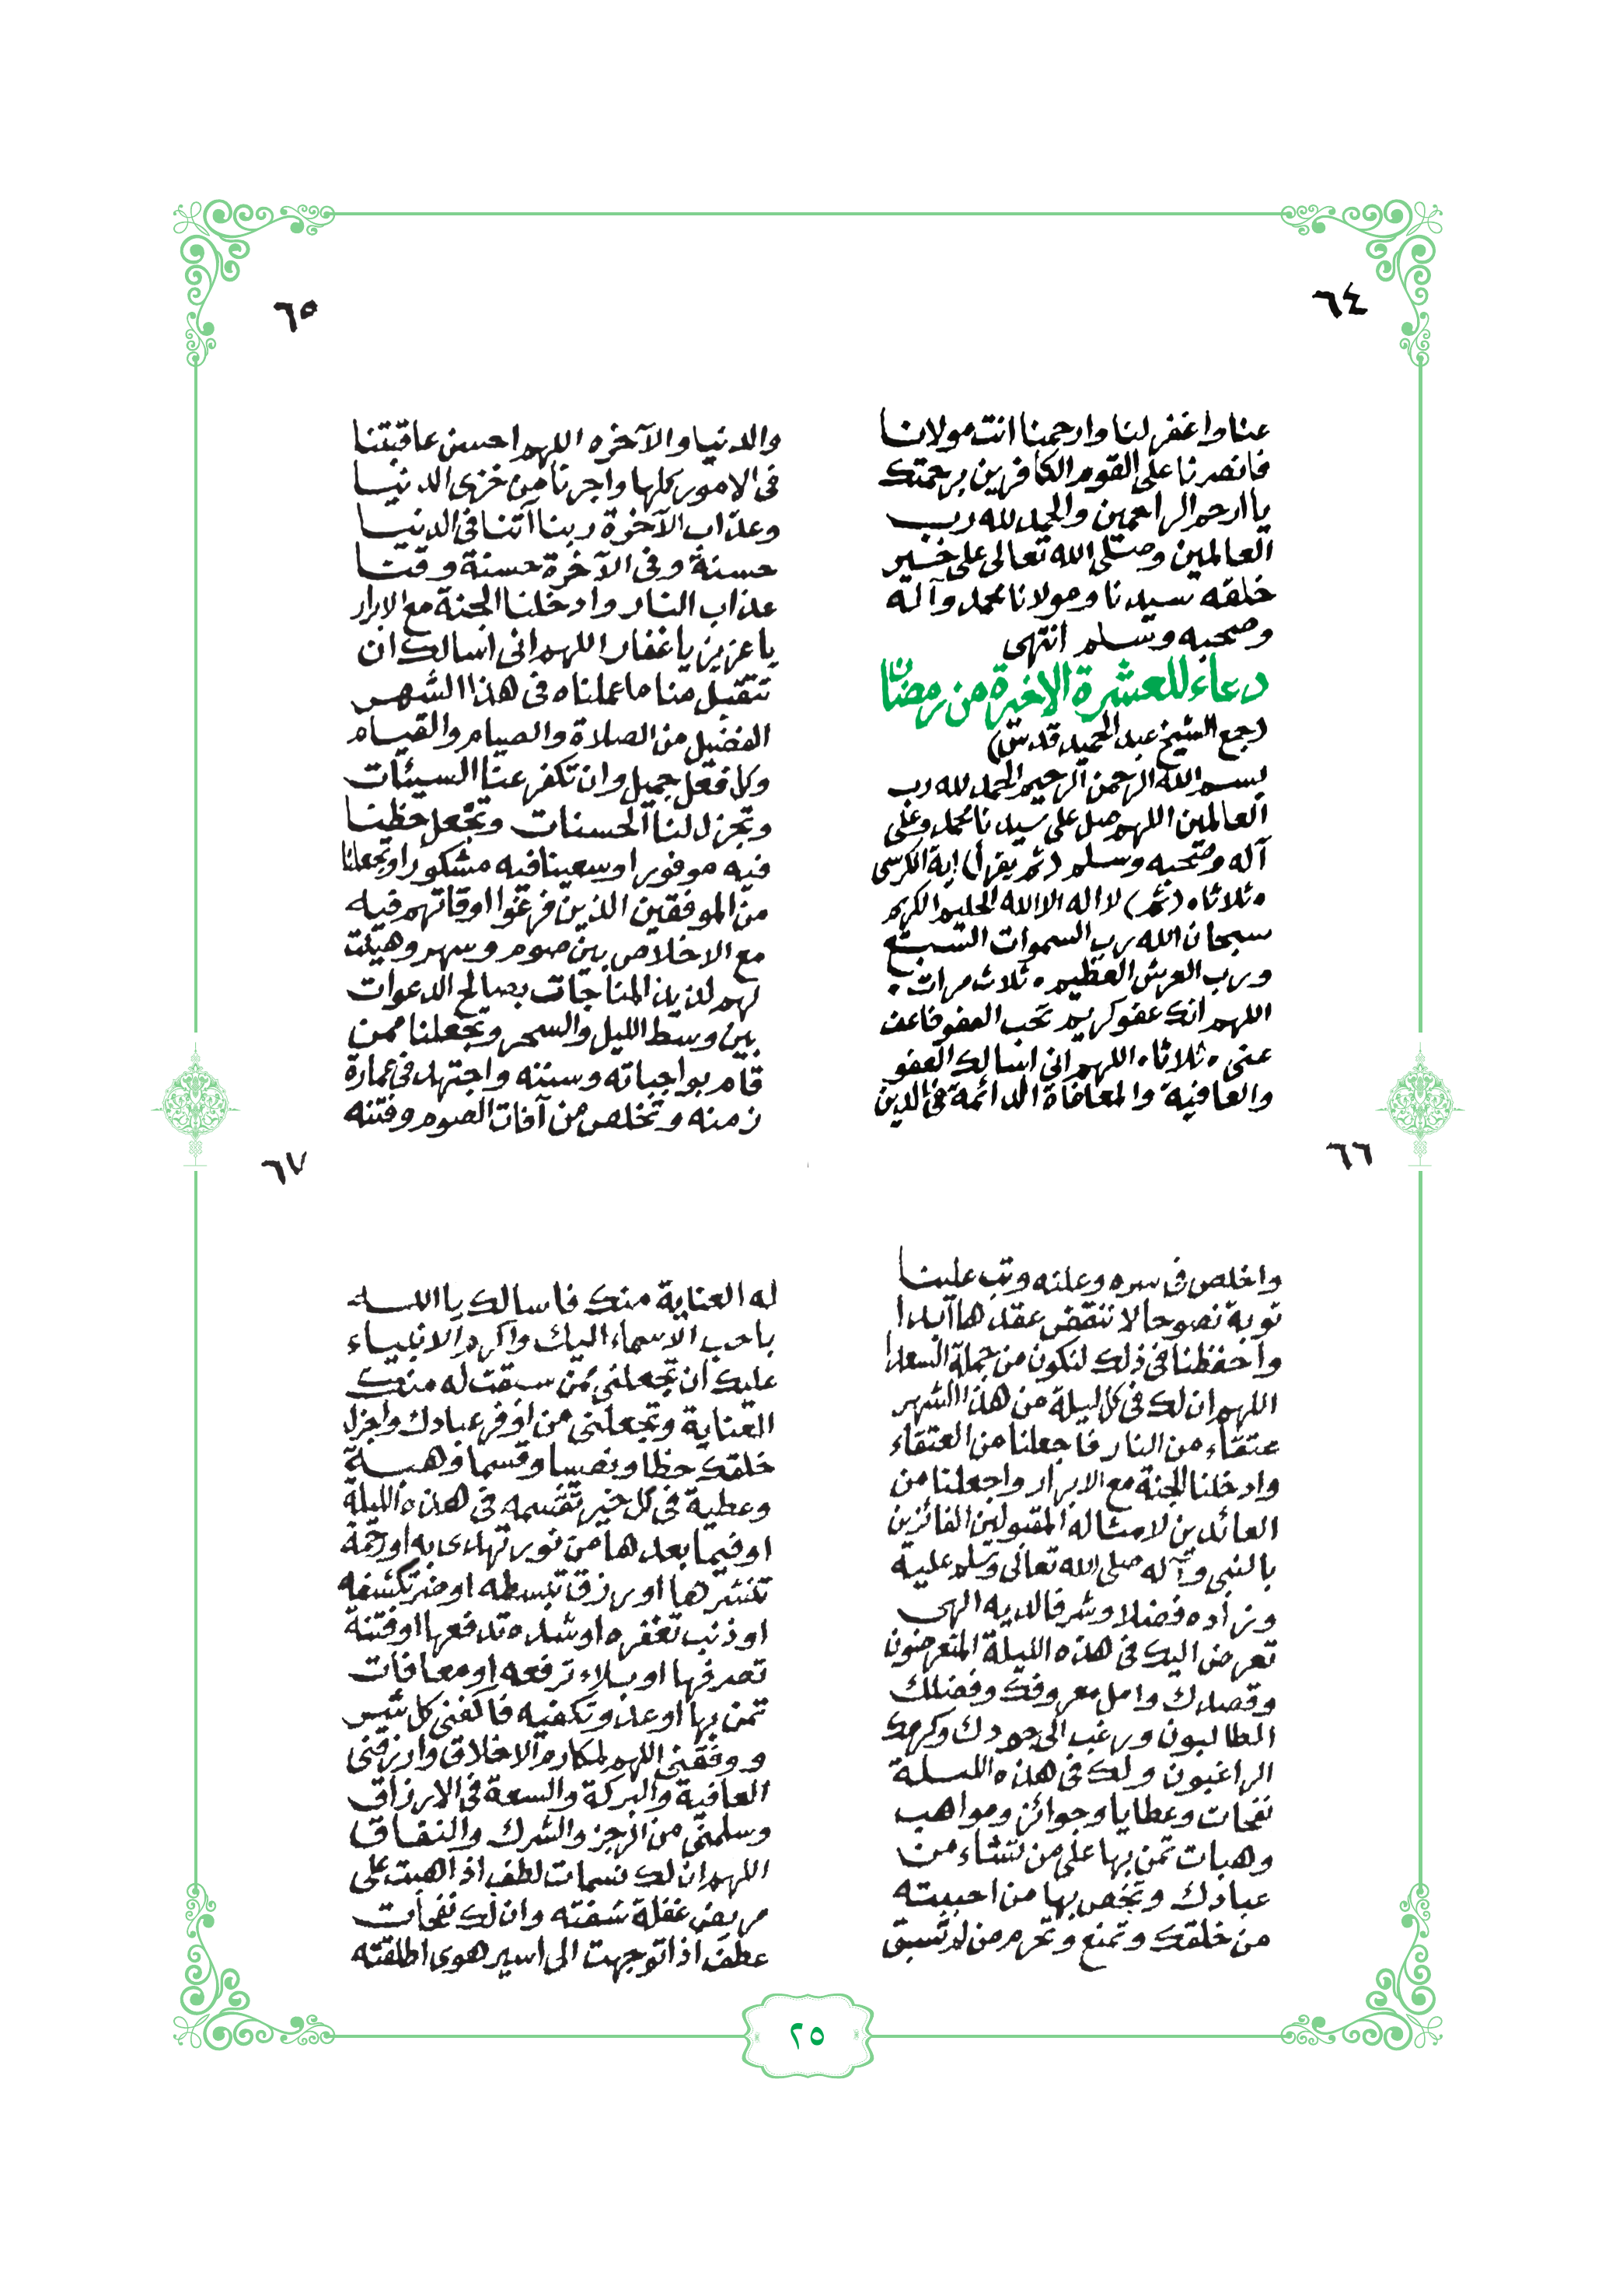 ٦٤
عنا واغفر لنا وارحمنا انت مولانا
فانصرنا على القوم الكافرين برحمتك
يا ارحم الراحمين والحمد لله رب
العالمين وصلى الله تعالى على خير
خلقه سيدنا ومولانا محمد وآله
وصحبه وسلم انتهى
دعاء للعشرة الاخيرة من رمضان
(جمع الشيخ عبد الحميد قدس)
بسم الله الرحمن الرحيم الحمد لله رب
العالمين اللهم صل على سيدنا محمد وعلى
آله وصحبه وسلم (ثم يقرأ) اية الكرسى
٠ ثلاثا ٠ (ثم) لا اله الا الله الحليم الكريم
سبحان الله رب السموات السبع
ورب العرش العظيم ٠ ثلاث مرات ٠
اللهم انك عفو كريم تحب العفو فاعف
عنى ٠ ثلاثا ٠ اللهم انى اسالك العفو
والعافية والمعافاة الدائمة فى الدين
٦٥
والدنيا والآخره اللهم احسن عاقبتنا
فى الامور كلها واجرنا من خزى الدنيا
وعذاب الآخرة ربنا آتنا فى الدنيا
حسنة وفى الآخرة حسنة وقنا
عذاب النار وادخلنا الجنة مع الابرار
يا عزيز يا غفار اللهم انى اسالك ان
تتقبل منا ما عملناه فى هذا الشهر
الفضيل من الصلاة والصيام والقيام
وكل فعل جميل وان تكفر عنا السيئات
وتجزل لنا الحسنات وتجعل حظنا
فيه موفورا وسعينا فيه مشكورا وتجعلنا
من الموفقين الذين فرغوا اوقاتهم فيه
مع الاخلاص بين صوم وسهر وهيئت
لهم لذيذ المناجات بصالح الدعوات
بين وسط الليل والسحر وتجعلنا ممن
قام بواجباته وسننه واجتهد فى عمارة
زمنه وتخلص من آفات الصوم وفتنه
٦٦
واخلص فى سره وعلنه وتب علينا
توبة نصوحا لا ننقض عقدها ابدا
واحفظنا فى ذلك لنكون من جملة السعدا
اللهم ان لك فى كل ليلة من هذا الشهر
عتقاء من النار فاجعلنا من العتقاء
وادخلنا الجنة مع الابرار واجعلنا من
العائدين لامثاله المقبولين الفائزين
بالنبى وآله صلى الله تعالى وسلم عليه
وزاده فضلا وشرفا لديه الهى
تعرض اليك فى هذه الليلة المتعرضون
وقصدك وامل معروفك وفضلك
الطالبون ورغب الى جودك وكرمك
الراغبون ولك فى هذه الليلة
نفحات وعطايا وجوائز ومواهب
وهبات تمن بها على من تشاء من
عبادك وتخص بها من احببته
من خلقك وتمنع وتحرم من لم تسبق
٦٧
له العناية منك فاسالك يا الله
باحب الاسماء اليك واكرم الانبياء
عليك ان تجعلنى ممن سبقت له منك
العناية وتجعلنى من اوفر عبادك واجزل
خلقك حظا ونصيبا وقسما وهبة
وعطية فى كل خير تقسمه فى هذه الليلة
او فيما بعدها من نور تهدى به او رحمة
تنشرها او رزق تبسطه او ضر تكشفه
او ذنب تغفره او شده تدفعها او فتنة
تصرفها او بلاء ترفعه او معافات
تمن بها او عدو تكفيه فاكفنى كل شر
ووفقنى اللهم لمكارم الاخلاق وارزقنى
العافية والبركة والسعة فى الارزاق
وسلمنى من الرجز والشرك والنفاق
اللهم ان لك نسمات لطف اذا هبت على
مريض غفلة شفته وان لك نفحات
عطف اذا توجهت الى اسير هوى اطلقته
٢٥